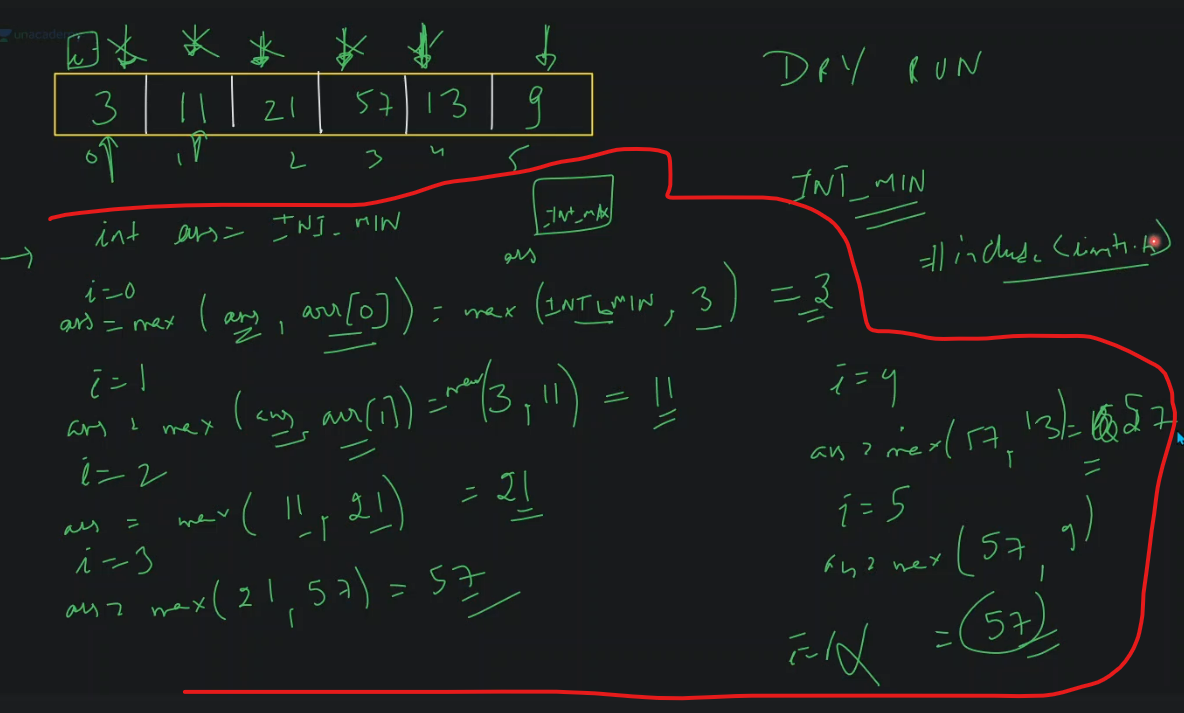 unacademy
i
3 11 21 57 13 9
0 1 2 3 4 5
DRY RUN
INT_MIN
int ans = INT_MIN
ans
i=0
ans = max (ans, arr[0]) = max (INT_MIN, 3) = 3
i=1
ans = max (ans, arr[1]) = max (3, 11) = 11
i=2
ans = max (11, 21) = 21
i=3
ans = max (21, 57) = 57
i=4
ans = max (57, 13) = 57
i=5
ans = max (57, 9)
= 57